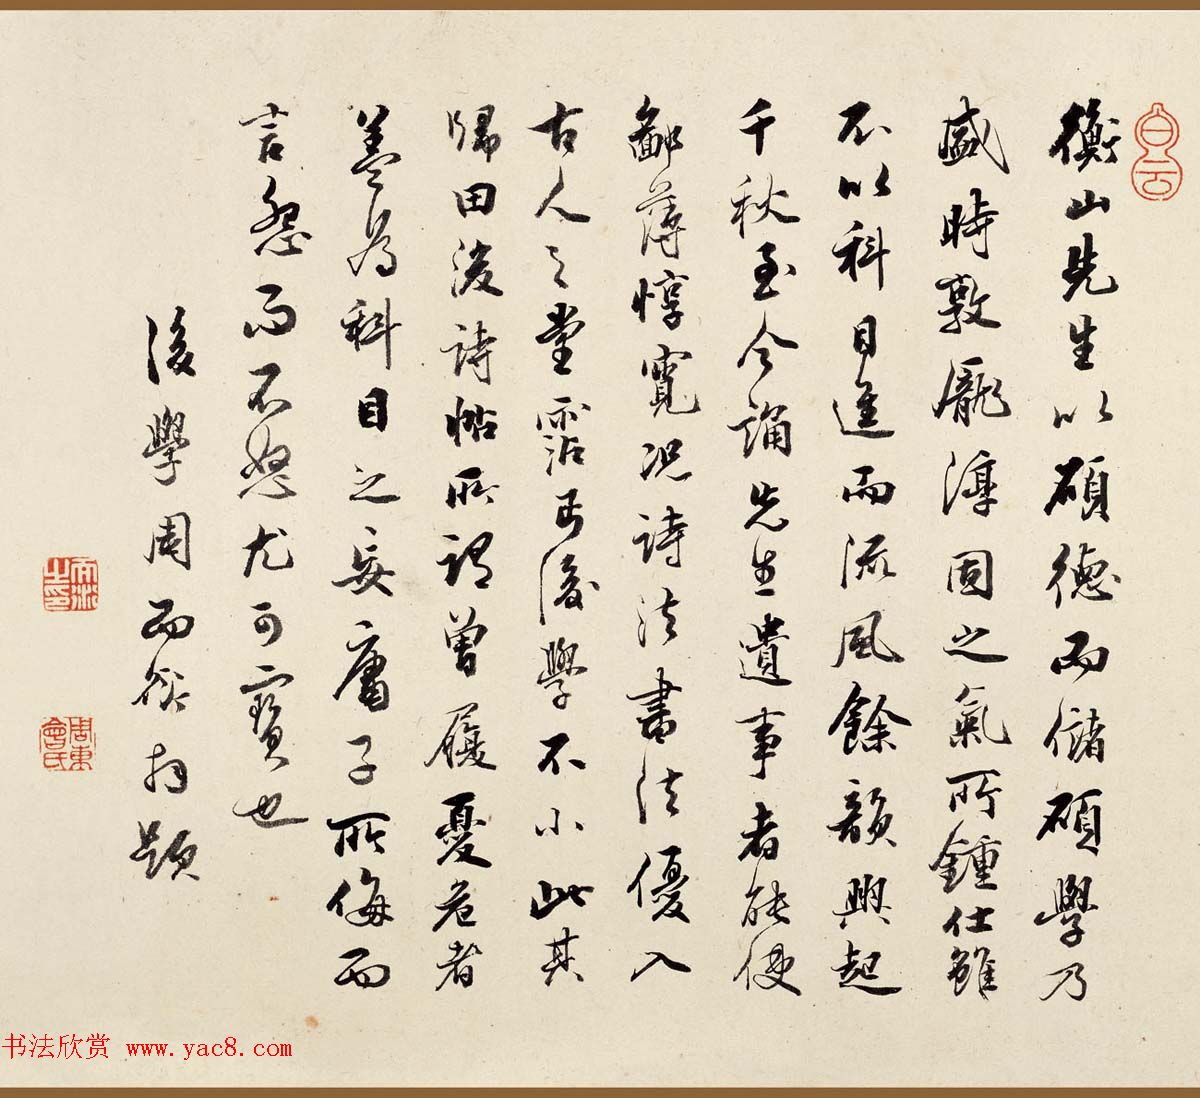 白云
衡山先生以碩德而儲碩學乃
盛時敦龐淳固之氣所鍾仕雖
不以科目進而流風餘韻興起
千秋至今誦先生遺事者能使
鄙薄惇寬況詩法書法優入
古人之堂霑丐後學不小此其
歸田後詩帖所謂曾履憂危者
蓋為科目之妄庸子所侮而
言怨而不怒尤可寶也
後學周而衍拜題
周東會氏
书法欣赏 www.yac8.com